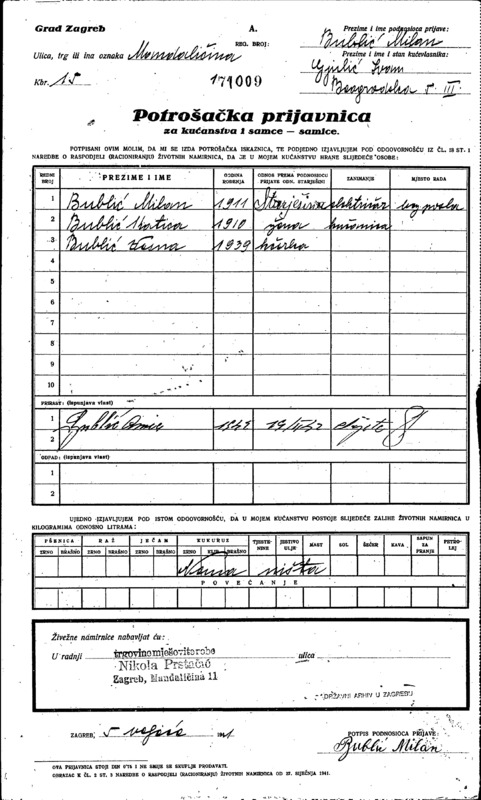 Grad Zagreb
A.
REG. BROJ:
Prezime i ime podnosioca prijave:
Bublić Milan
Ulica, trg ili ina oznaka Mandaličina
Prezime i ime i stan kućevlasnika:
Gjulić Ivan
Kbr. 15
171009
Beogradska 5. III.
Potrošačka prijavnica
za kućanstva i samce — samice.
POTPISANI OVIM MOLIM, DA MI SE IZDA POTROŠAČKA ISKAZNICA, TE PODJEDNO IZJAVLJUJEM POD ODGOVORNOŠĆU IZ ČL. 18 ST. 1
NAREDBE O RASPODJELI (RACIONIRANJU) ŽIVOTNIH NAMIRNICA, DA JE U MOJEM KUĆANSTVU HRANE SLIJEDEĆE OSOBE:
REDNI BROJ PREZIME I IME GODINA ROĐENJA ODNOS PREMA PODNOSIOCU PRIJAVE ODN. STARJEŠINI ZANIMANJE MJESTO RADA
1 Bublić Milan 1911 Starješina
2 Bublić Katica 1910 žena kućanica
3 Bublić Vesna 1939 kćerka
4
5
6
7
8
9
10
PRIRAST: (ispunjava vlast)
1 Bublić 1942 dijete
2
ODPAD: (ispunjava vlast)
1
2
UJEDNO IZJAVLJUJEM POD ISTOM ODGOVORNOŠĆU, DA U MOJEM KUĆANSTVU POSTOJE SLIJEDEĆE ZALIHE ŽIVOTNIH NAMIRNICA U
KILOGRAMIMA ODNOSNO LITRAMA:
PŠENICA RAŽ JEČAM KUKURUZ TJESTENINE JESTIVO ULJE MAST SOL ŠEĆER KAVA SAPUN ZA PRANJE PETROLEJ
ZRNO BRAŠNO ZRNO BRAŠNO ZRNO BRAŠNO ZRNO KLIP BRAŠNO
Nema ništa
POVEĆANJE
Živežne namirnice nabavljat ću:
U radnji trgovinomješovitorobe ulica
Nikola Prstačić
Zagreb, Mandaličina 11
DRŽAVNI ARHIV U ZAGREBU
ZAGREB, 5 veljače 1941.
POTPIS PODNOSIOCA PRIJAVE:
Bublić Milan
OVA PRIJAVNICA STOJI DIN 0'75 I NE SMIJE SE SKUPLJE PRODAVATI.
OBRAZAC K ČL. 2 ST. 3 NAREDBE O RASPODJELI (RACIONIRANJU) ŽIVOTNIH NAMIRNICA OD 27. SIJEČNJA 1941.